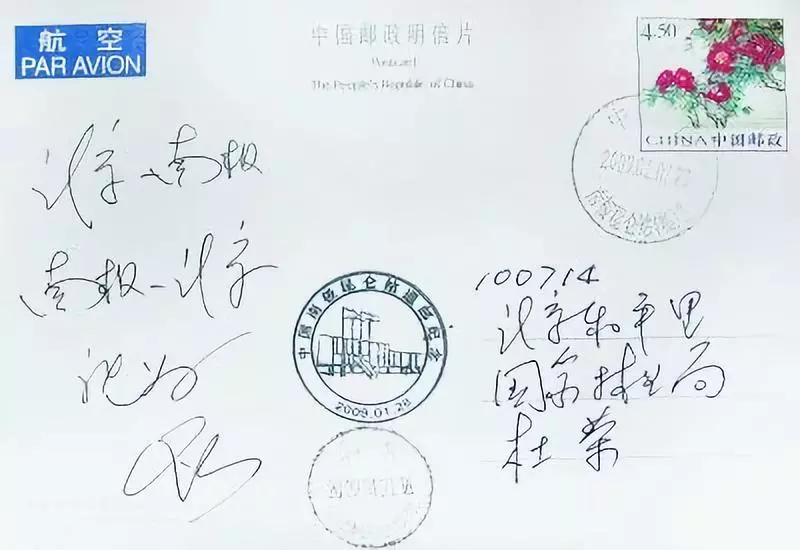 航 空
PAR AVION
中国邮政明信片
Postcard
The People's Republic of China
4.50
CHINA 中国邮政
北京-南极
南极-北京
中国南极昆仑站
2009.01.28
100714
北京和平里
国家林业局
杜荣